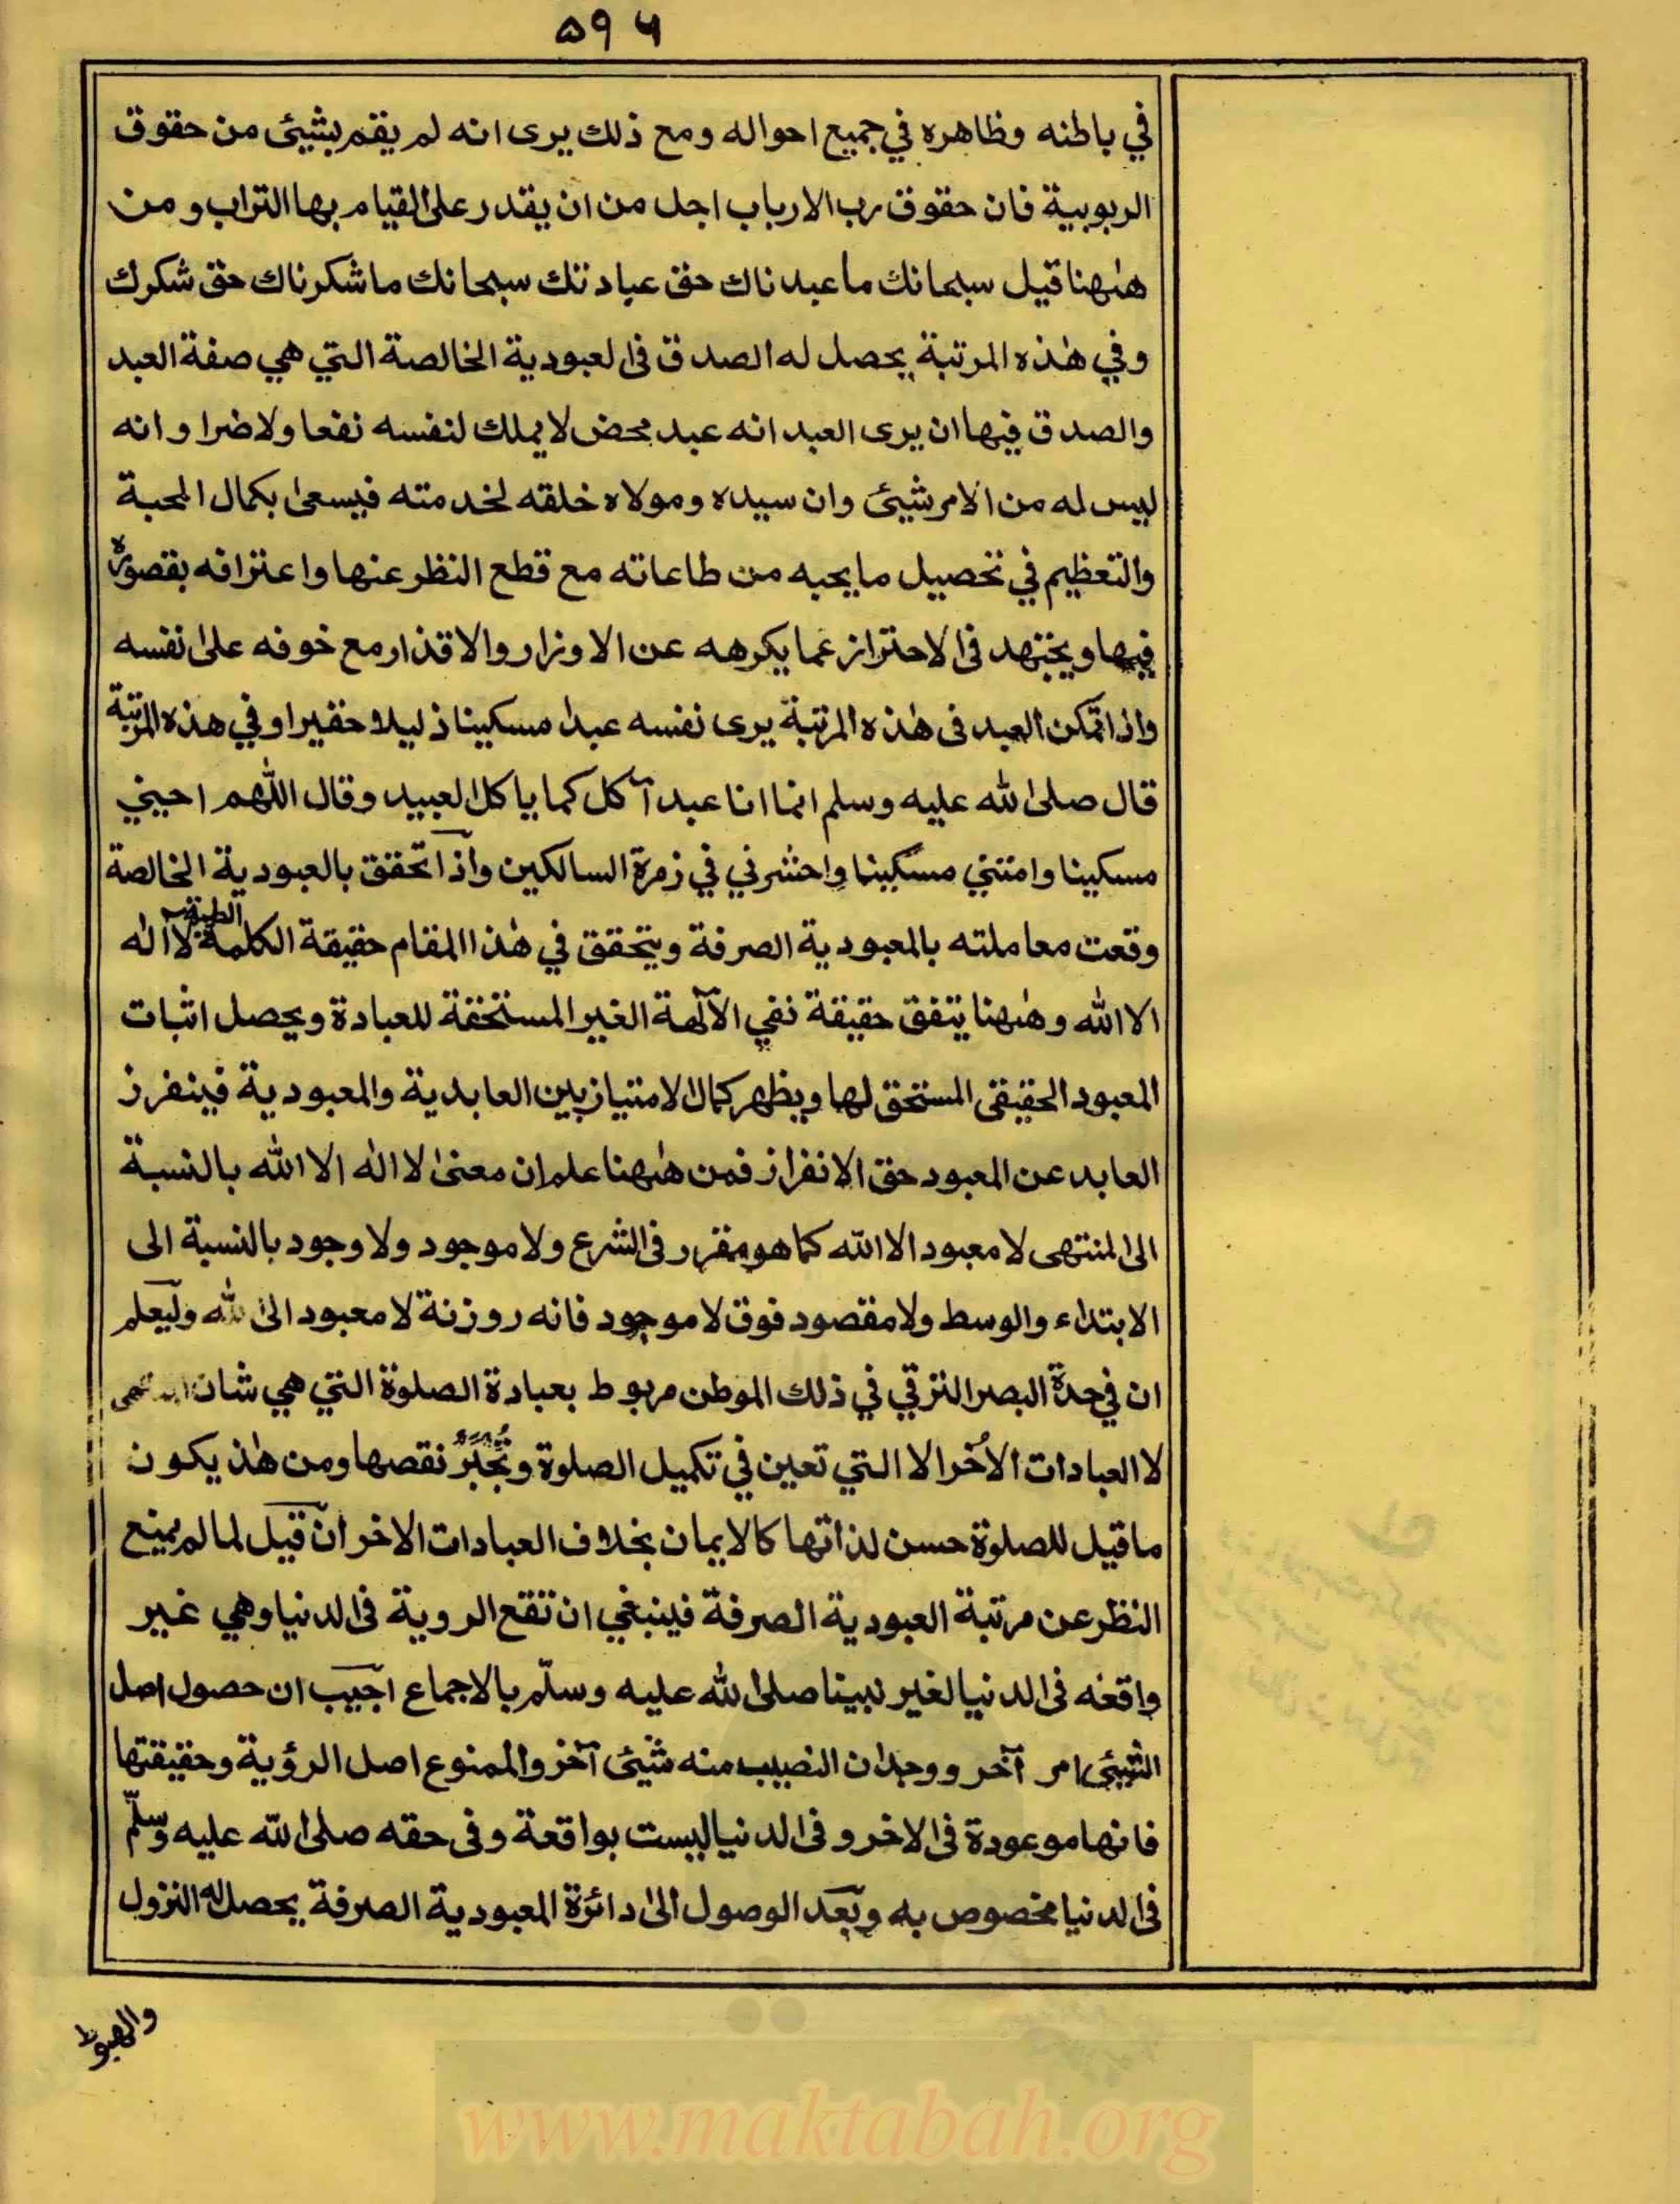 ۵۹۶
في باطنه وظاهره في جميع احواله ومع ذلك يرى انه لم يقم بشيئ من حقوق
الربوبية فان حقوق رب الارباب اجل من ان يقدر على القيام بها التراب ومن
هٰهنا قيل سبحانك ما عبدناك حق عبادتك سبحانك ما شكرناك حق شكرك
وفي هٰذه المرتبة يحصل له الصدق فى العبودية الخالصة التي هي صفة العبد
والصدق فيها ان يرى العبد انه عبد محض لا يملك لنفسه نفعا ولا ضرا وانه
ليس له من الامر شيئ وان سيده ومولاه خلقه لخدمته فيسعى بكمال المحبة
والتعظيم في تحصيل ما يحبه من طاعاته مع قطع النظر عنها واعترافه بقصوره
فيها ويجتهد فى الاحتراز عما يكرهه عن الاوزار والاقذار مع خوفه على نفسه
واذا تمكن العبد فى هٰذه المرتبة يرى نفسه عبدا مسكينا ذليلا حقيرا وفي هذه المرتبة
قال صلى الله عليه وسلم انما انا عبد آكل كما ياكل العبيد وقال اللّٰهم احيني
مسكينا وامتني مسكينا واحشرني في زمرة السالكين واذا تحقق بالعبودية الخالصة
وقعت معاملته بالمعبودية الصرفة ويتحقق في هٰذا المقام حقيقة الكلمة الطيبة لا اله
الا الله وهٰهنا يتفق حقيقة نفي الآلهة الغير المستحقة للعبادة ويحصل اثبات
المعبود الحقيقى المستحق لها ويظهر كمال الامتياز بين العابدية والمعبودية فينفرز
العابد عن المعبود حق الانفراز فمن هٰهنا علم ان معنى لا اله الا الله بالنسبة
الى المنتهى لا معبود الا الله كما هو مقرر فى الشرع ولا موجود ولا وجود بالنسبة الى
الابتداء والوسط ولا مقصود فوق لا موجود فانه روزنة لا معبود الى الله وليعلم
ان في حدة البصر الترقي في ذلك الموطن مربوط بعبادة الصلوة التي هي شان
لا العبادات الأخر الا التي تعين في تكميل الصلوة وتجبر نقصها ومن هٰذ يكون
ما قيل للصلوة حسن لذاتها كالايمان بخلاف العبادات الاخر ان قيل لما لم يمنع
النظر عن مرتبة العبودية الصرفة فينبغي ان تقع الروية فى الدنيا وهي غير
واقعه فى الدنيا لغير نبينا صلى الله عليه وسلّم بالاجماع اجيب ان حصول اصل
الشيئ امر آخر ووجدان النصيب منه شيئ آخر والممنوع اصل الرؤية وحقيقتها
فانها موعودة فى الاخر وفى الدنيا ليست بواقعة وفى حقه صلى الله عليه وسلّم
فى الدنيا مخصوص به وبعد الوصول الى دائرة المعبودية الصرفة يحصل له النزول
والهبوط
www.maktabah.org